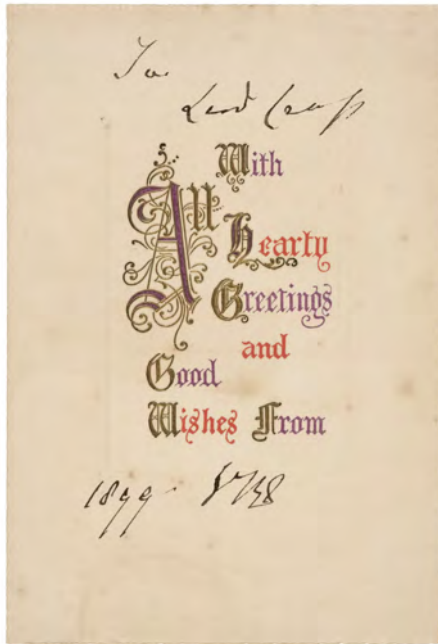 To
Lord
With
All
Hearty
Greetings
and
Good
Wishes From
1899